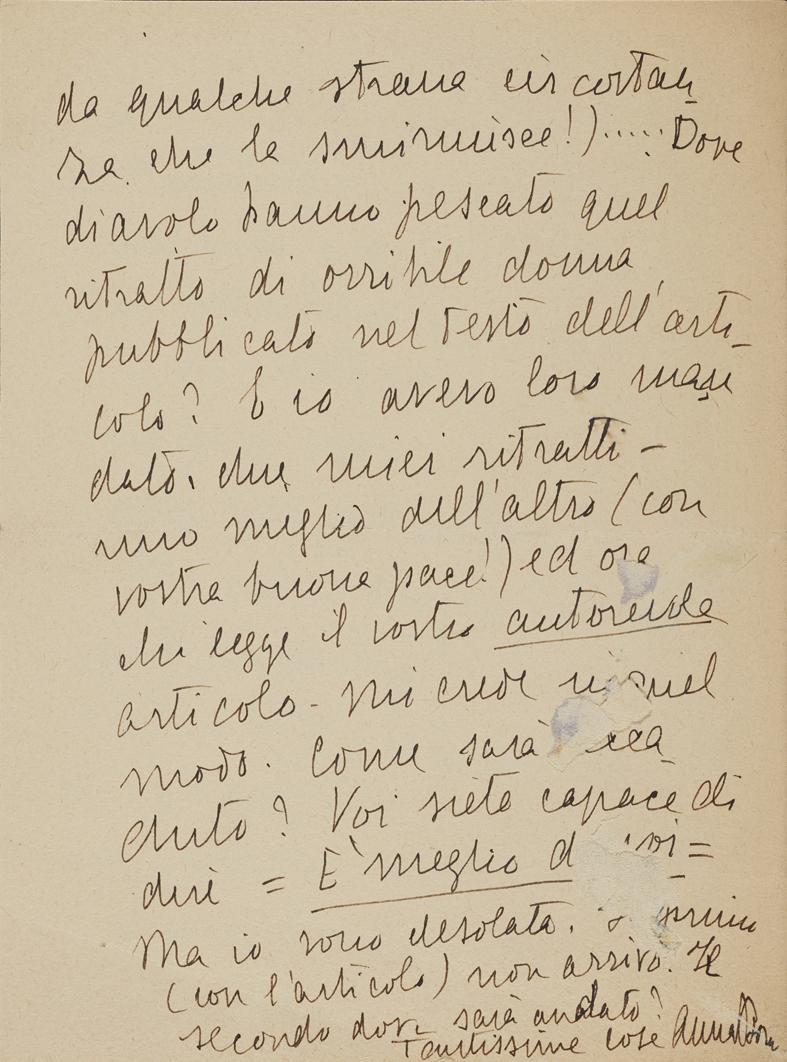 da qualche strana circostan
za che la sminuisce!)..... Dove
diavolo hanno pescato quel
ritratto di orribile donna
pubblicato nel testo dell'arti_
colo? E io avevo loro man
dato due miei ritratti -
uno meglio dell'altro (con
vostra buona pace!) ed ora
chi legge il vostro autorevole
articolo - mi crede in quel
modo. Come sarà cca
duto? Voi siete capace di
dire = E' meglio d
Ma io sono desolata.
(con l'articolo) non arrivo. Il
secondo dove sarà andato?
Tantissime cose Anna